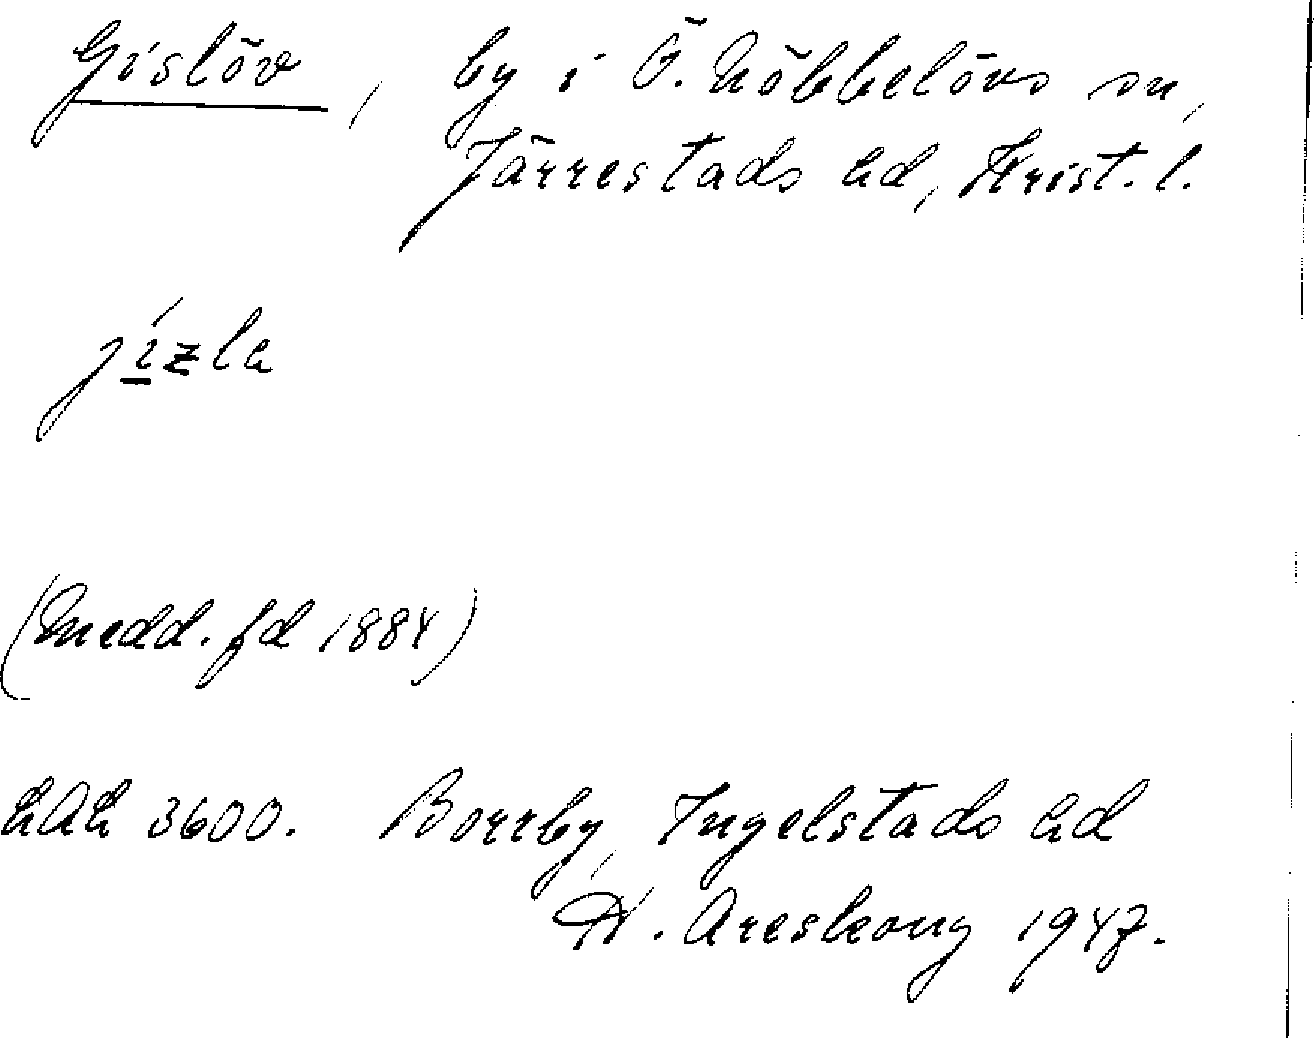 Gislöv, by i Ö. Nöbbelövs sn,
Järrestads hd, Krist. l.
jízla
(Medd. fd 1884)
LAL 3600. Borrby, Ingelstads hd
K. Areskoug 1947.